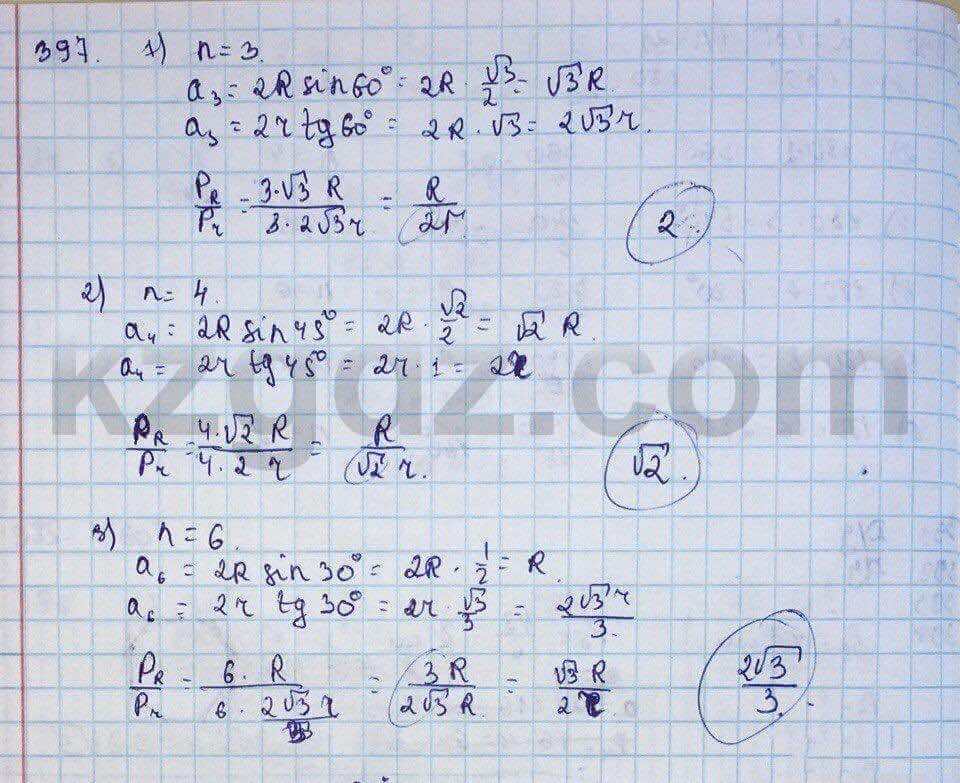 397. 1) n = 3.
a₃ = 2R sin 60° = 2R · √3/2 = √3 R.
a₃ = 2r tg 60° = 2R · √3 = 2√3 r.
P_R/P_r = 3·√3 R / 3·2√3 r = R/2r. 2
2) n = 4.
a₄ = 2R sin 45° = 2R · √2/2 = √2 R.
a₄ = 2r tg 45° = 2r · 1 = 2r
P_R/P_r = 4·√2 R / 4·2 r = R/√2 r. √2.
3) n = 6.
a₆ = 2R sin 30° = 2R · 1/2 = R.
a₆ = 2r tg 30° = 2r · √3/3 = 2√3 r/3.
P_R/P_r = 6· R / 6 · 2√3 r/3 = 3R/2√3 R. = √3 R/2r 2√3/3.
kzgdz.com